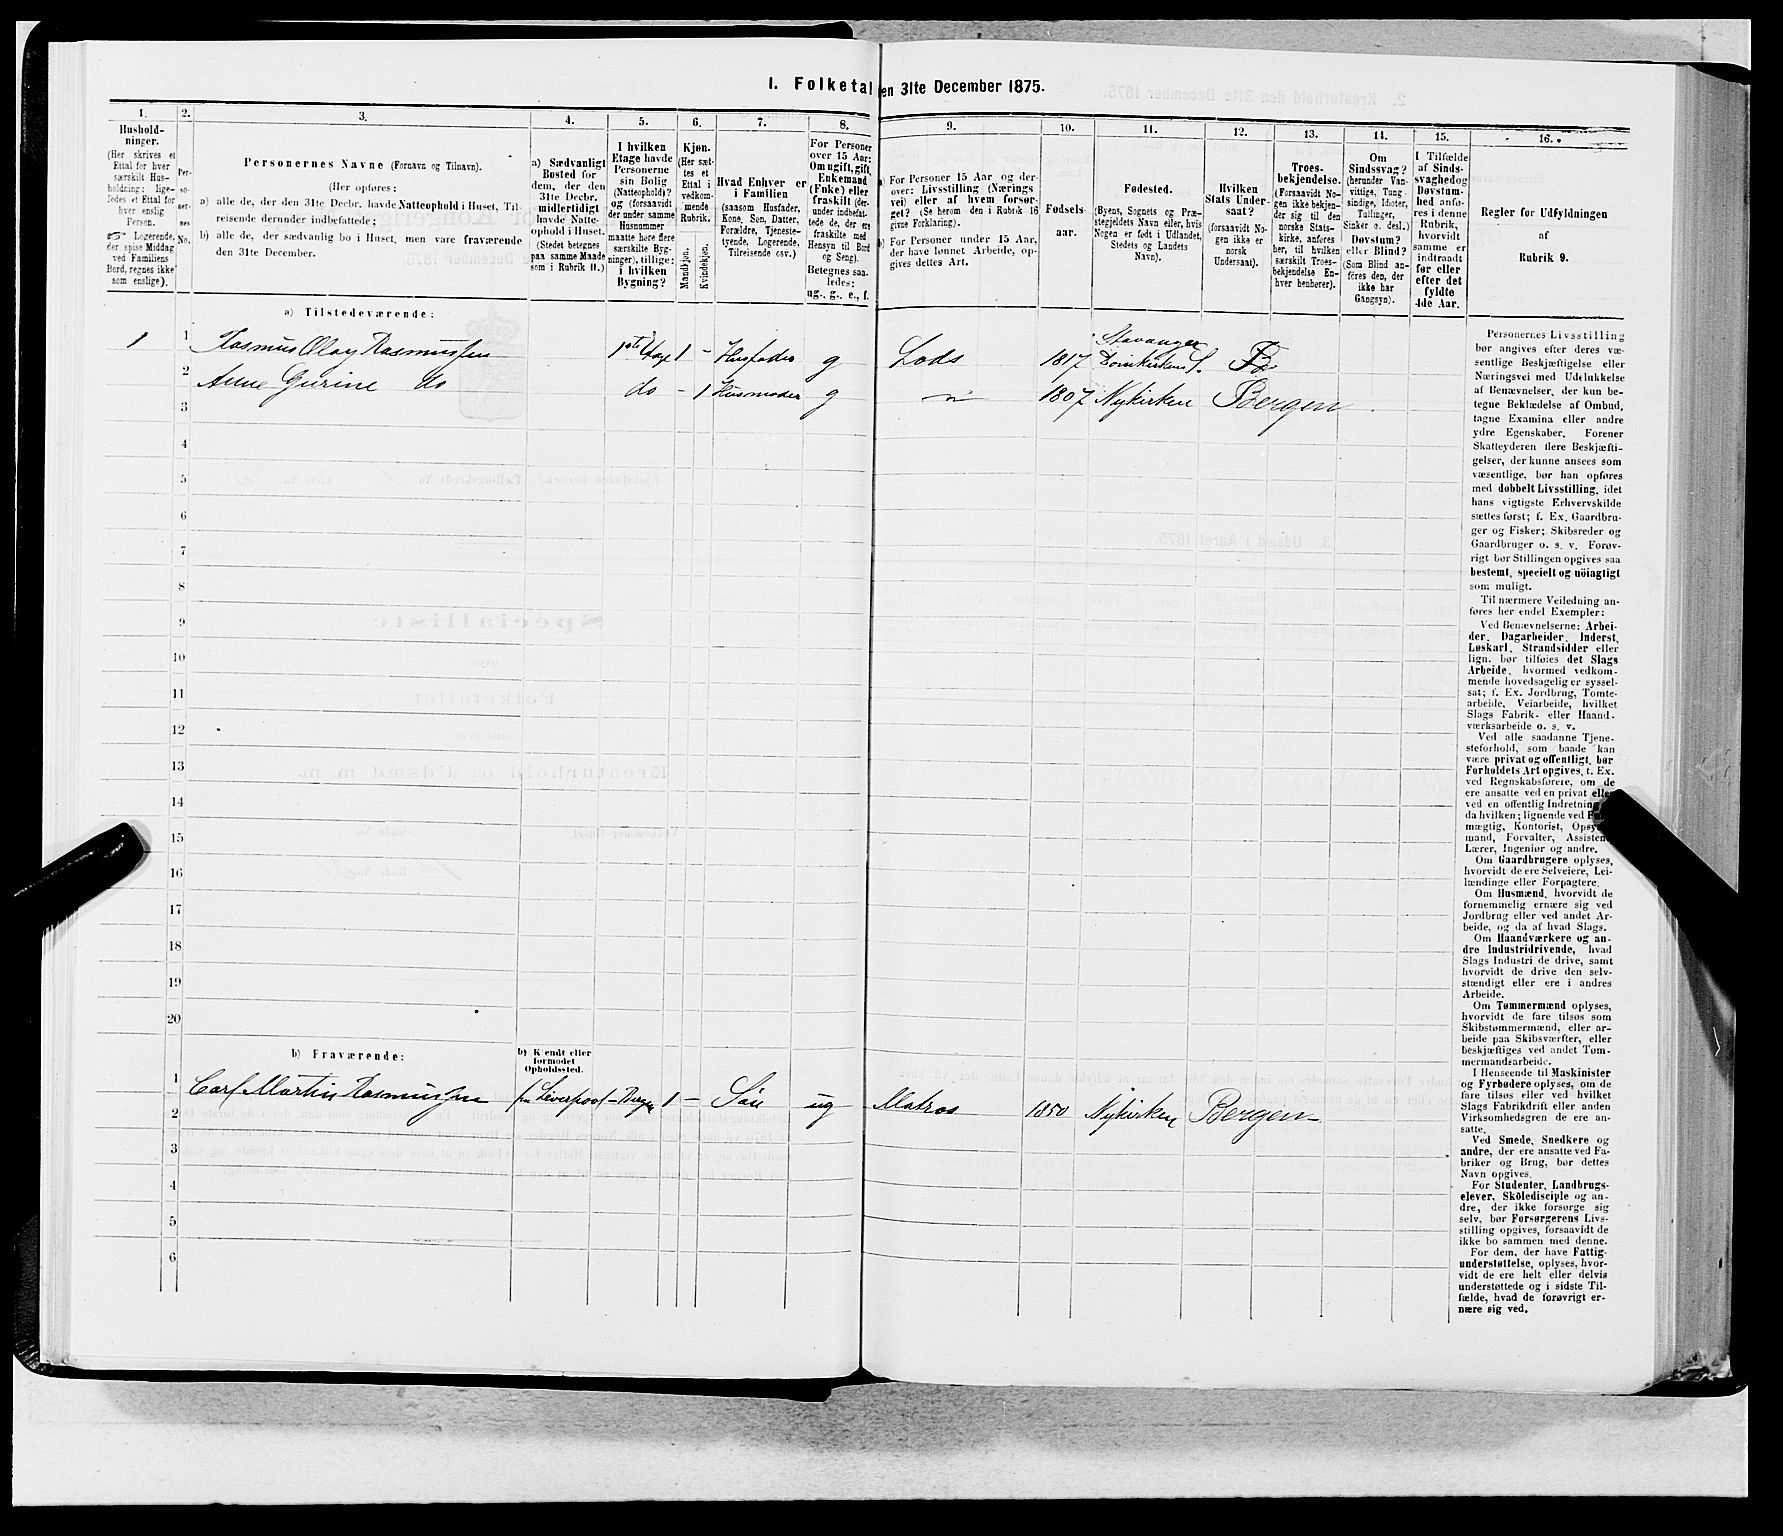 1. Folketal den 31te December 1875.
1. 2. 3. 4. 5. 6. 7. 8. 9. 10. 11. 12. 13. 14. 15. 16.
Hushold-
ninger.
(Her skrives et
Ettal for hver
særskilt Hus-
holdning; lige-
ledes et Ettal for
hver enslig
Person.
☞ Logerende,
der spise Middag
ved Familiens
Bord, regnes ikke
som enslige).
Per-
so-
ner-
nes
No.
Personernes Navne (Fornavn og Tilnavn).
(Her opføres:
a) alle de, der den 31te Decbr. havde Natteophold i Huset, Til-
reisende derunder indbefattede;
b) alle de, der sædvanlig bo i Huset, men vare fraværende
den 31te December.
a) Sædvanligt
Bosted for
dem, der den
31te Decbr.
midlertidigt
havde Natte-
ophold i Huset.
(Stedet betegnes
paa samme Maade
som i Rubrik 11.)
I hvilken
Etage havde
Personerne
sin Bolig
(Natteophold)?
og (forsaavidt
der under samme
Husnummer
maatte høre flere
særskilte Byg-
ninger), tillige:
i hvilken
Bygning?
Kjøn.
(Her sæt-
tes et
Ettal i
vedkom-
mende
Rubrik.
Mandkjøn.
Kvindekjøn.
Hvad Enhver er
i Familien
(saasom Husfader,
Kone, Søn, Datter,
Forældre, Tjeneste-
tyende, Logerende,
Tilreisende osv.)
For Personer
over 15 Aar:
Om ugift, gift,
Enkemand
(Enke) eller
fraskilt (der-
under indbefat-
tede de, der ere
fraskilte med
Hensyn til Bord
og Seng).
Betegnes saa-
ledes:
ug., g., e., f.
a) For Personer 15 Aar og der-
over: Livsstilling (Nærings
vei) eller af hvem forsør-
get? (Se herom den i Rubrik 16
givne Forklaring).
b) For Personer under 15 Aar,
der have lønnet Arbeide, op-
gives dettes Art.
Fødsels-
aar.
Fødested.
(Byens, Sognets og Præ-
stegjeldets Navn eller, hvis
Nogen er født i Udlandet,
Stedets og Landets
Navn).
Hvilken
Stats Under-
saat?
(forsaavidt No-
gen ikke er
norsk
Undersaat).
Troes-
bekjendelse.
(Forsaavidt No-
gen ikke bekjen-
der sig til den
norske Stats-
kirke, anføres
her, til hvilken
særskilt Troes-
bekjendelse En-
hver henhører).
Om
Sindssvag?
(herunder Van-
vittige, Tung-
sindige, Idioter,
Tullinger,
Sinker o. desl.)
Døvstum?
eller Blind?
(Som Blind an-
føres den, der
ikke har
Gangsyn).
I Tilfælde
af Sinds-
svaghed og
Døvstum-
hed anfø-
res i denne
Rubrik,
hvorvidt
samme er
indtraadt
før eller
efter det
fyldte
4de Aar.
Regler for Udfyldningen
af
Rubrik 9.
a) Tilstedeværende:
1 1 Rasmus Olay Rasmussen 1ste Etag 1 - Husfader g Lods 1817 Stavanger Domkirkens S.
2 Anne Gurine do do - 1 Husmoder g 1807 Nykirken Bergen
3
4
5
6
7
8
9
10
11
12
13
14
15
16
17
18
19
20
b) Fraværende:
b) Kjendt eller
formodet
Opholdssted.
1 Carl Martin Rasmussen fra Liverpool - Bergen 1 - Søn ug Matros 1850 Nykirken Bergen
2
3
4
5
6
Personernes Livsstilling
bør angives efter deres væ-
sentlige Beskjæftigelse eller
Næringsvei med Udelukkelse
af Benævnelser, der kun be-
tegne Beklædelse af Ombud,
tagne Examina eller andre
ydre Egenskaber. Forener
Skatteyderen flere Beskjæfti-
gelser, der kunne ansees som
væsentlige, bør han opføres
med dobbelt Livsstilling, idet
hans vigtigste Erhvervskilde
sættes først; f. Ex. Gaardbru-
ger og Fisker; Skibsreder og
Gaardbruger o. s. v. Forøv-
rigt bør Stillingen opgives saa
bestemt, specielt og nöiagtigt
som muligt.
Til nærmere Veiledning an-
føres her endel Exempler:
Ved Benævnelserne: Arbei-
der, Dagarbeider, Inderst,
Løskarl, Strandsidder eller
lign. bør tilføies det Slags
Arbeide, hvormed vedkom-
mende hovedsagelig er syssel-
sat; f. Ex. Jordbrug, Tomte-
arbeide, Veiarbeide, hvilket
Slags Fabrik- eller Haand-
værksarbeide o. s. v.
Ved alle saadanne Tjene-
steforhold, som baade kan
være privat og offentligt, bør
Forholdets Art opgives, t. Ex.
ved Regnskabsførere, om de
ere ansatte ved en privat eller
ved en offentlig Indretning
da hvilken; lignende ved
mægtig, Kontorist, Opsy
mand, Forvalter, Assistent
Lærer, Ingeniør og andre.
Om Gaardbrugere oplyses,
hvorvidt de ere Selveiere, Lei-
lændinge eller Forpagtere.
Om Husmænd, hvorvidt de
fornemmelig ernære sig ved
Jordbrug eller ved andet Ar-
beide, og da af hvad Slags.
Om Haandværkere og an-
dre Industridrivende, hvad
Slags Industri de drive, samt
hvorvidt de drive den selv-
stændigt eller ere i andres
Arbeide.
Om Tømmermænd oplyses,
hvorvidt de fare tilsøs som
Skibstømmermænd, eller ar-
beide paa Skibsværfter, eller
beskjæftiges ved andet Tøm-
mermandsarbeide.
I Henseende til Maskinister
og Fyrbødere oplyses, om de
fare tilsøs eller ved hvilket
Slags Fabrikdrift eller anden
Virksomhedsgren de ere an-
satte.
Ved Smede, Snedkere og
andre, der ere ansatte ved Fa-
briker og Brug, bør dettes
Navn opgives.
For Studenter, Landbrugs-
elever, Skoledisciple og an-
dre, der ikke forsørge sig
selv, bør Forsørgerens Livs-
stilling opgives, forsaavidt de
ikke bo sammen med denne.
For dem, der have Fattig-
understøttelse, oplyses, hvor-
vidt de ere helt eller delvis
understøttede og i sidste Til-
fælde, hvad de forøvrigt er-
nære sig ved.